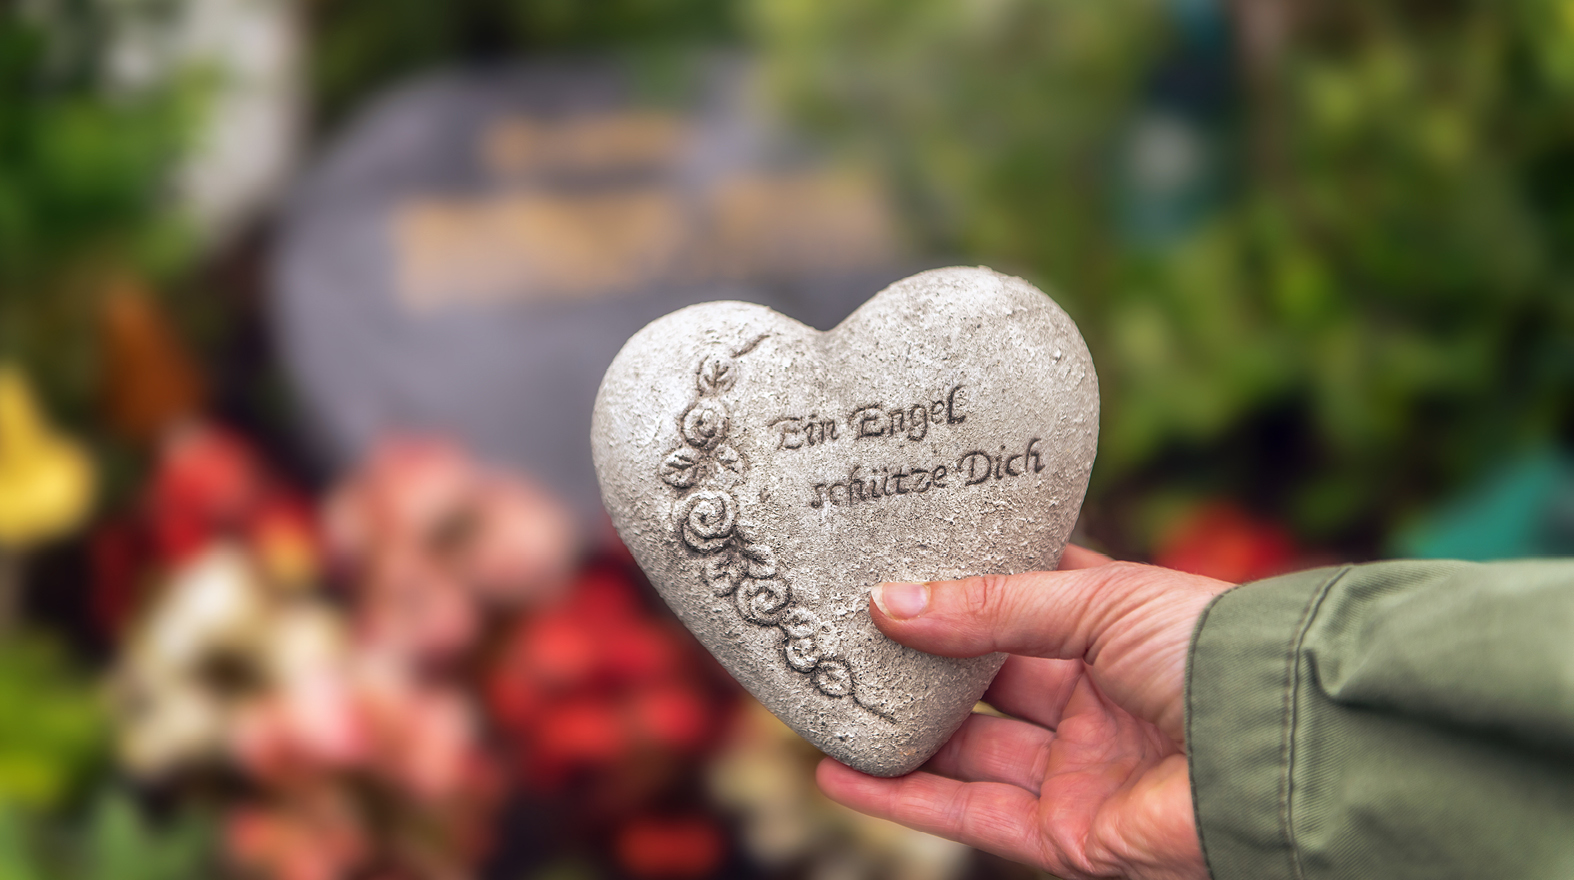 Ein Engel
schütze Dich